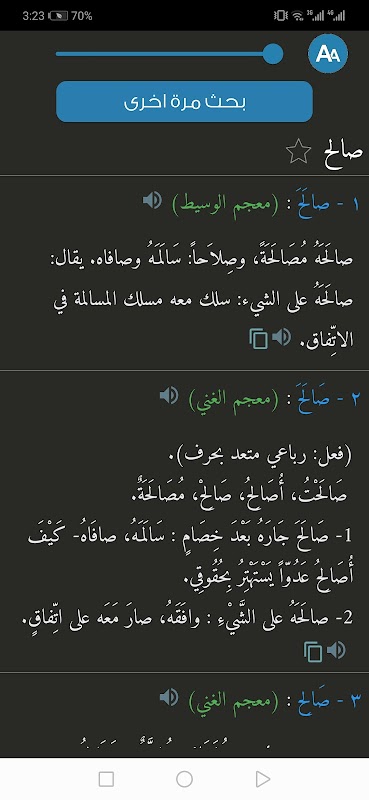 3:23 70% 3G 4G
AA
بحث مرة اخرى
صالح
١ - صالَحَ : (معجم الوسيط)
صالَحَهُ مُصَالَحَةً، وصِلاَحاً: سَالَمَهُ وصافاه. يقال:
صالَحَهُ على الشيء: سلك معه مسلك المسالمة في
الاتِّفاق.
٢ - صَالَحَ : (معجم الغني)
(فعل: رباعي متعد بحرف).
صَالَحْتُ، أُصَالِحُ، صَالِحْ، مُصَالَحَةٌ.
1- صَالَحَ جَارَهُ بَعْدَ خِصَامٍ : سَالَمَهُ، صافَاهُ- كَيْفَ
أُصَالِحُ عَدُوّاً يَسْتَهْتِرُ بِحُقُوقِي.
2- صالَحَهُ على الشَّيْءِ : وافَقَهُ، صارَ مَعَه على اتِّفاقٍ.
٣ - صَالِح : (معجم الغني)